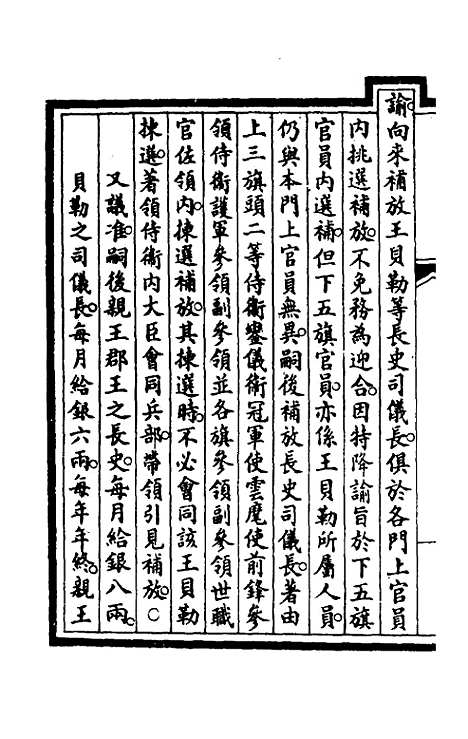 諭向來補放王貝勒等長史司儀長。俱於各門上官員
內挑選補放。不免務為迎合。因特降諭旨於下五旗
官員內選補。但下五旗官員。亦係王貝勒所屬人員。
仍與本門上官員無異。嗣後補放長史司儀長。著由
上三旗頭二等侍衞鑾儀衞冠軍使雲麾使前鋒參
領侍衞護軍參領副參領並各旗參領副參領世職
官佐領內。揀選補放。其揀選時。不必會同該王貝勒
揀選。著領侍衞內大臣會同兵部。帶領引見補放。○
又議准。嗣後親王郡王之長史。每月給銀八兩。
貝勒之司儀長。每月給銀六兩。每年年終。親王